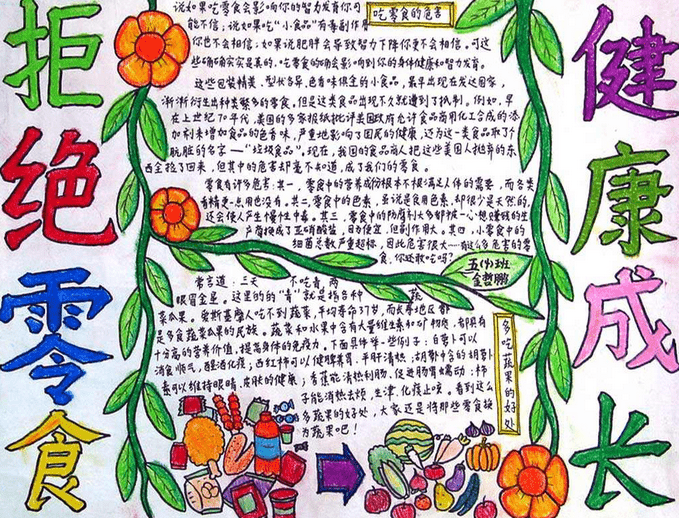 拒绝零食
健康成长
吃零食的危害
说如果吃零食会影响你的智力发育你可
能不信；说如果吃“小食品”有毒副作
你也不会相信；如果说肥胖会导致智力下降你更不会相信。可这
些确确实实是真的。吃零食的确会影响到你的身体健康和智力发育。
这些包装精美、型状各异、色香味俱全的小食品，最早出现在发达国家，
渐渐衍生出种类繁多的零食，但是这类食品出现不久就遭到了抵制。例如，早
在上世纪70年代，美国的多家报纸批评美国政府允许食品商用化工合成的添
加剂来增加食品的色香味，严重地影响了国民的健康，还为这一类食品取了个
肮脏的名字—“垃圾食品”。现在，我国的食品商人把这些美国人抛弃的东
西全捡了回来，但其中的危害却毫不知道，成了我们的零食。
零食有许多危害：其一，零食中的营养成份根本不能满足人体的需要，而各类
香精更一点用也没有。其二，零食中的色素，虽说是食用色素，却很少是天然的，
还会使人产生慢性中毒。其三，零食中的防腐剂大多都被一心想赚钱的生
产商换成了亚硝酸盐，因为便宜，但副作用大。其四，小零食中的
细菌总数严重超标，因此危害很大……有这么多危害的零
食，你还敢吃吗？
五(4)班
金哲鹏
常言道：三天不吃青，两
眼冒金星。这里的的“青”就是指各种蔬
菜瓜果。爱斯基摩人吃不到蔬菜，平均寿命37岁，而长寿地区都
是多食蔬菜瓜果的民族。蔬菜和水果中含有大量维生素和矿物质，都具有
十分高的营养价值，提高身体的免疫力。下面具体举一些例子：白萝卜可以
消食顺气，醒酒化痰；西红柿可以健脾养胃，平肝清热；胡萝卜中含的胡萝卜
素可以维持眼睛、皮肤的健康；香蕉能清热利肠，促进肠胃蠕动；柿
子能消热去烦，生津，化痰止咳。看到这么
多蔬果的好处，大家还是将那些零食换
为蔬果吧！
多吃蔬果的好处